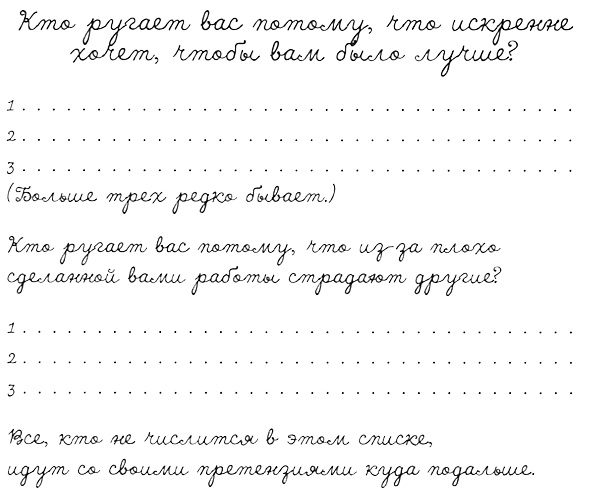 Кто ругает вас потому, что искренне
хочет, чтобы вам было лучше?
1 . . . . . . . . . . . . . . . . . . . . . . . . . . . . . . . . . . . . .
2 . . . . . . . . . . . . . . . . . . . . . . . . . . . . . . . . . . . . .
3 . . . . . . . . . . . . . . . . . . . . . . . . . . . . . . . . . . . . .
(Больше трех редко бывает.)
Кто ругает вас потому, что из-за плохо
сделанной вами работы страдают другие?
1 . . . . . . . . . . . . . . . . . . . . . . . . . . . . . . . . . . . . .
2 . . . . . . . . . . . . . . . . . . . . . . . . . . . . . . . . . . . . .
3 . . . . . . . . . . . . . . . . . . . . . . . . . . . . . . . . . . . . .
Все, кто не числится в этом списке,
идут со своими претензиями куда подальше.